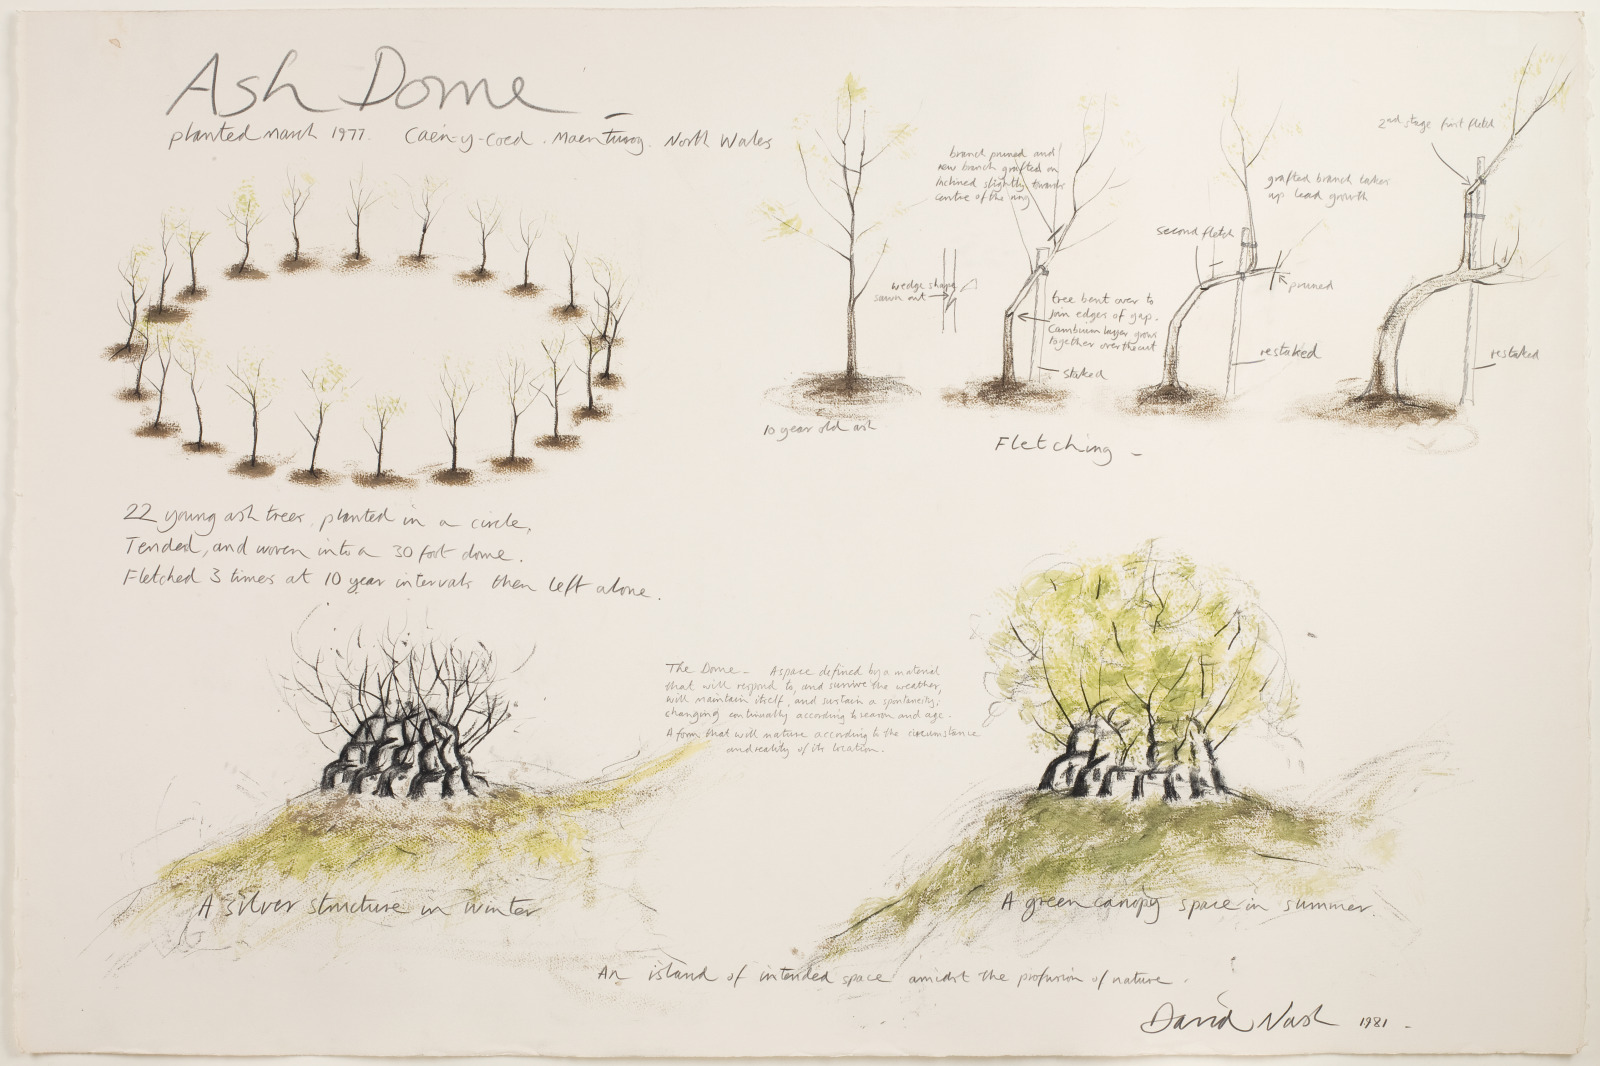 Ash Dome –
planted March 1977. Caen-y-coed. Maentwrog. North Wales
22 young ash trees, planted in a circle,
Tended, and woven into a 30 foot dome.
Fletched 3 times at 10 year intervals then left alone.
10 year old ash
wedge shape
sawn out
branch pruned and
new branch grafted on
inclined slightly towards
centre of the ring
tree bent over to
join edges of gap.
Cambium layer grows
together over the cut
staked
second fletch
grafted branch takes
up lead growth
pruned
restaked
2nd stage first fletch
restaked
Fletching –
The Dome – A space defined by a material
that will respond to, and survive the weather,
will maintain itself, and sustain a spontaneity,
changing continually according to season and age.
A form that will mature according to the circumstance
and reality of its location.
A silver structure in winter
A green canopy space in summer.
An island of intended space amidst the profusion of nature.
David Nash 1981 –